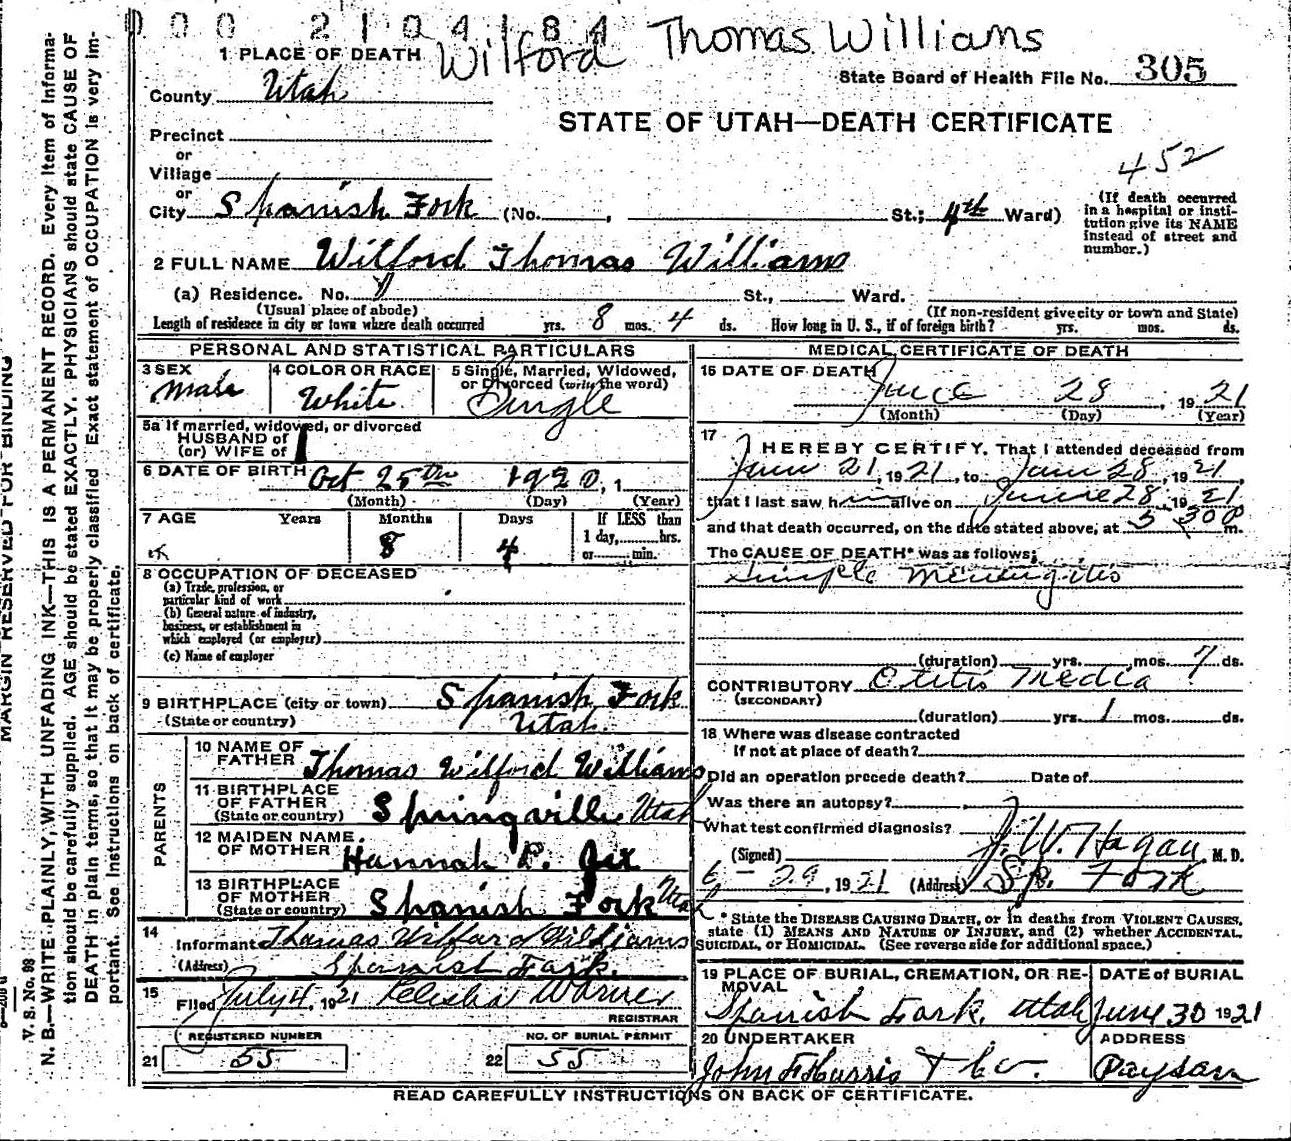 000 2104184
Wilford Thomas Williams
1 PLACE OF DEATH
State Board of Health File No. 305
County Utah
STATE OF UTAH—DEATH CERTIFICATE
Precinct
or
Village
452
or
City Spanish Fork (No. , St.; 4th Ward)
(If death occurred in a hospital or insti-
tution give its NAME
instead of street and
number.)
2 FULL NAME Wilford Thomas Williams
(a) Residence. No. St., Ward.
(Usual place of abode) (If non-resident give city or town and State)
Length of residence in city or town where death occurred yrs. 8 mos. 4 ds. How long in U. S., if of foreign birth? yrs. mos. ds.
PERSONAL AND STATISTICAL PARTICULARS
3 SEX Male
4 COLOR OR RACE White
5 Single, Married, Widowed,
or Divorced (write the word)
Single
5a If married, widowed, or divorced
HUSBAND of
(or) WIFE of
6 DATE OF BIRTH Oct 25th 1920, 1
(Month) (Day) (Year)
7 AGE Years Months Days If LESS than
1 day, hrs.
or min.
8 4
8 OCCUPATION OF DECEASED
(a) Trade, profession, or
particular kind of work
(b) General nature of industry,
business, or establishment in
which employed (or employer)
(c) Name of employer
9 BIRTHPLACE (city or town) Spanish Fork
(State or country) Utah
PARENTS
10 NAME OF
FATHER Thomas Wilford Williams
11 BIRTHPLACE
OF FATHER
(State or country) Springville Utah
12 MAIDEN NAME
OF MOTHER Hannah P. Jex
13 BIRTHPLACE
OF MOTHER
(State or country) Spanish Fork Utah
14
Informant Thomas Wilford Williams
(Address) Spanish Fork.
15
Filed July 4, 1921 Celestia Warner
REGISTRAR
REGISTERED NUMBER NO. OF BURIAL PERMIT
21 55 22 55
MEDICAL CERTIFICATE OF DEATH
16 DATE OF DEATH June 28, 1921
(Month) (Day) (Year)
17
I HEREBY CERTIFY, That I attended deceased from
June 21, 1921, to June 28, 1921
that I last saw him alive on June 28, 1921
and that death occurred, on the date stated above, at 5 30 P m.
The CAUSE OF DEATH* was as follows:
Simple Meningitis
(duration) yrs. mos. 7 ds.
CONTRIBUTORY Otitis Media
(SECONDARY)
(duration) yrs. 1 mos. ds.
18 Where was disease contracted
if not at place of death?
Did an operation precede death? Date of
Was there an autopsy?
What test confirmed diagnosis?
(Signed) J. W. Hagan M. D.
6 - 29, 1921 (Address) Sp. Fork
* State the DISEASE CAUSING DEATH, or in deaths from VIOLENT CAUSES,
state (1) MEANS AND NATURE OF INJURY, and (2) whether ACCIDENTAL,
SUICIDAL, or HOMICIDAL. (See reverse side for additional space.)
19 PLACE OF BURIAL, CREMATION, OR RE-
MOVAL
Spanish Fork, Utah
DATE of BURIAL
June 30 1921
20 UNDERTAKER
John F Harris & Co.
ADDRESS
Payson
READ CAREFULLY INSTRUCTIONS ON BACK OF CERTIFICATE.
MARGIN RESERVED FOR BINDING
V. S. No. 98
N. B.—WRITE PLAINLY, WITH UNFADING INK—THIS IS A PERMANENT RECORD. Every item of informa-
tion should be carefully supplied. AGE should be stated EXACTLY. PHYSICIANS should state CAUSE OF
DEATH in plain terms, so that it may be properly classified. Exact statement of OCCUPATION is very im-
portant. See instructions on back of certificate.